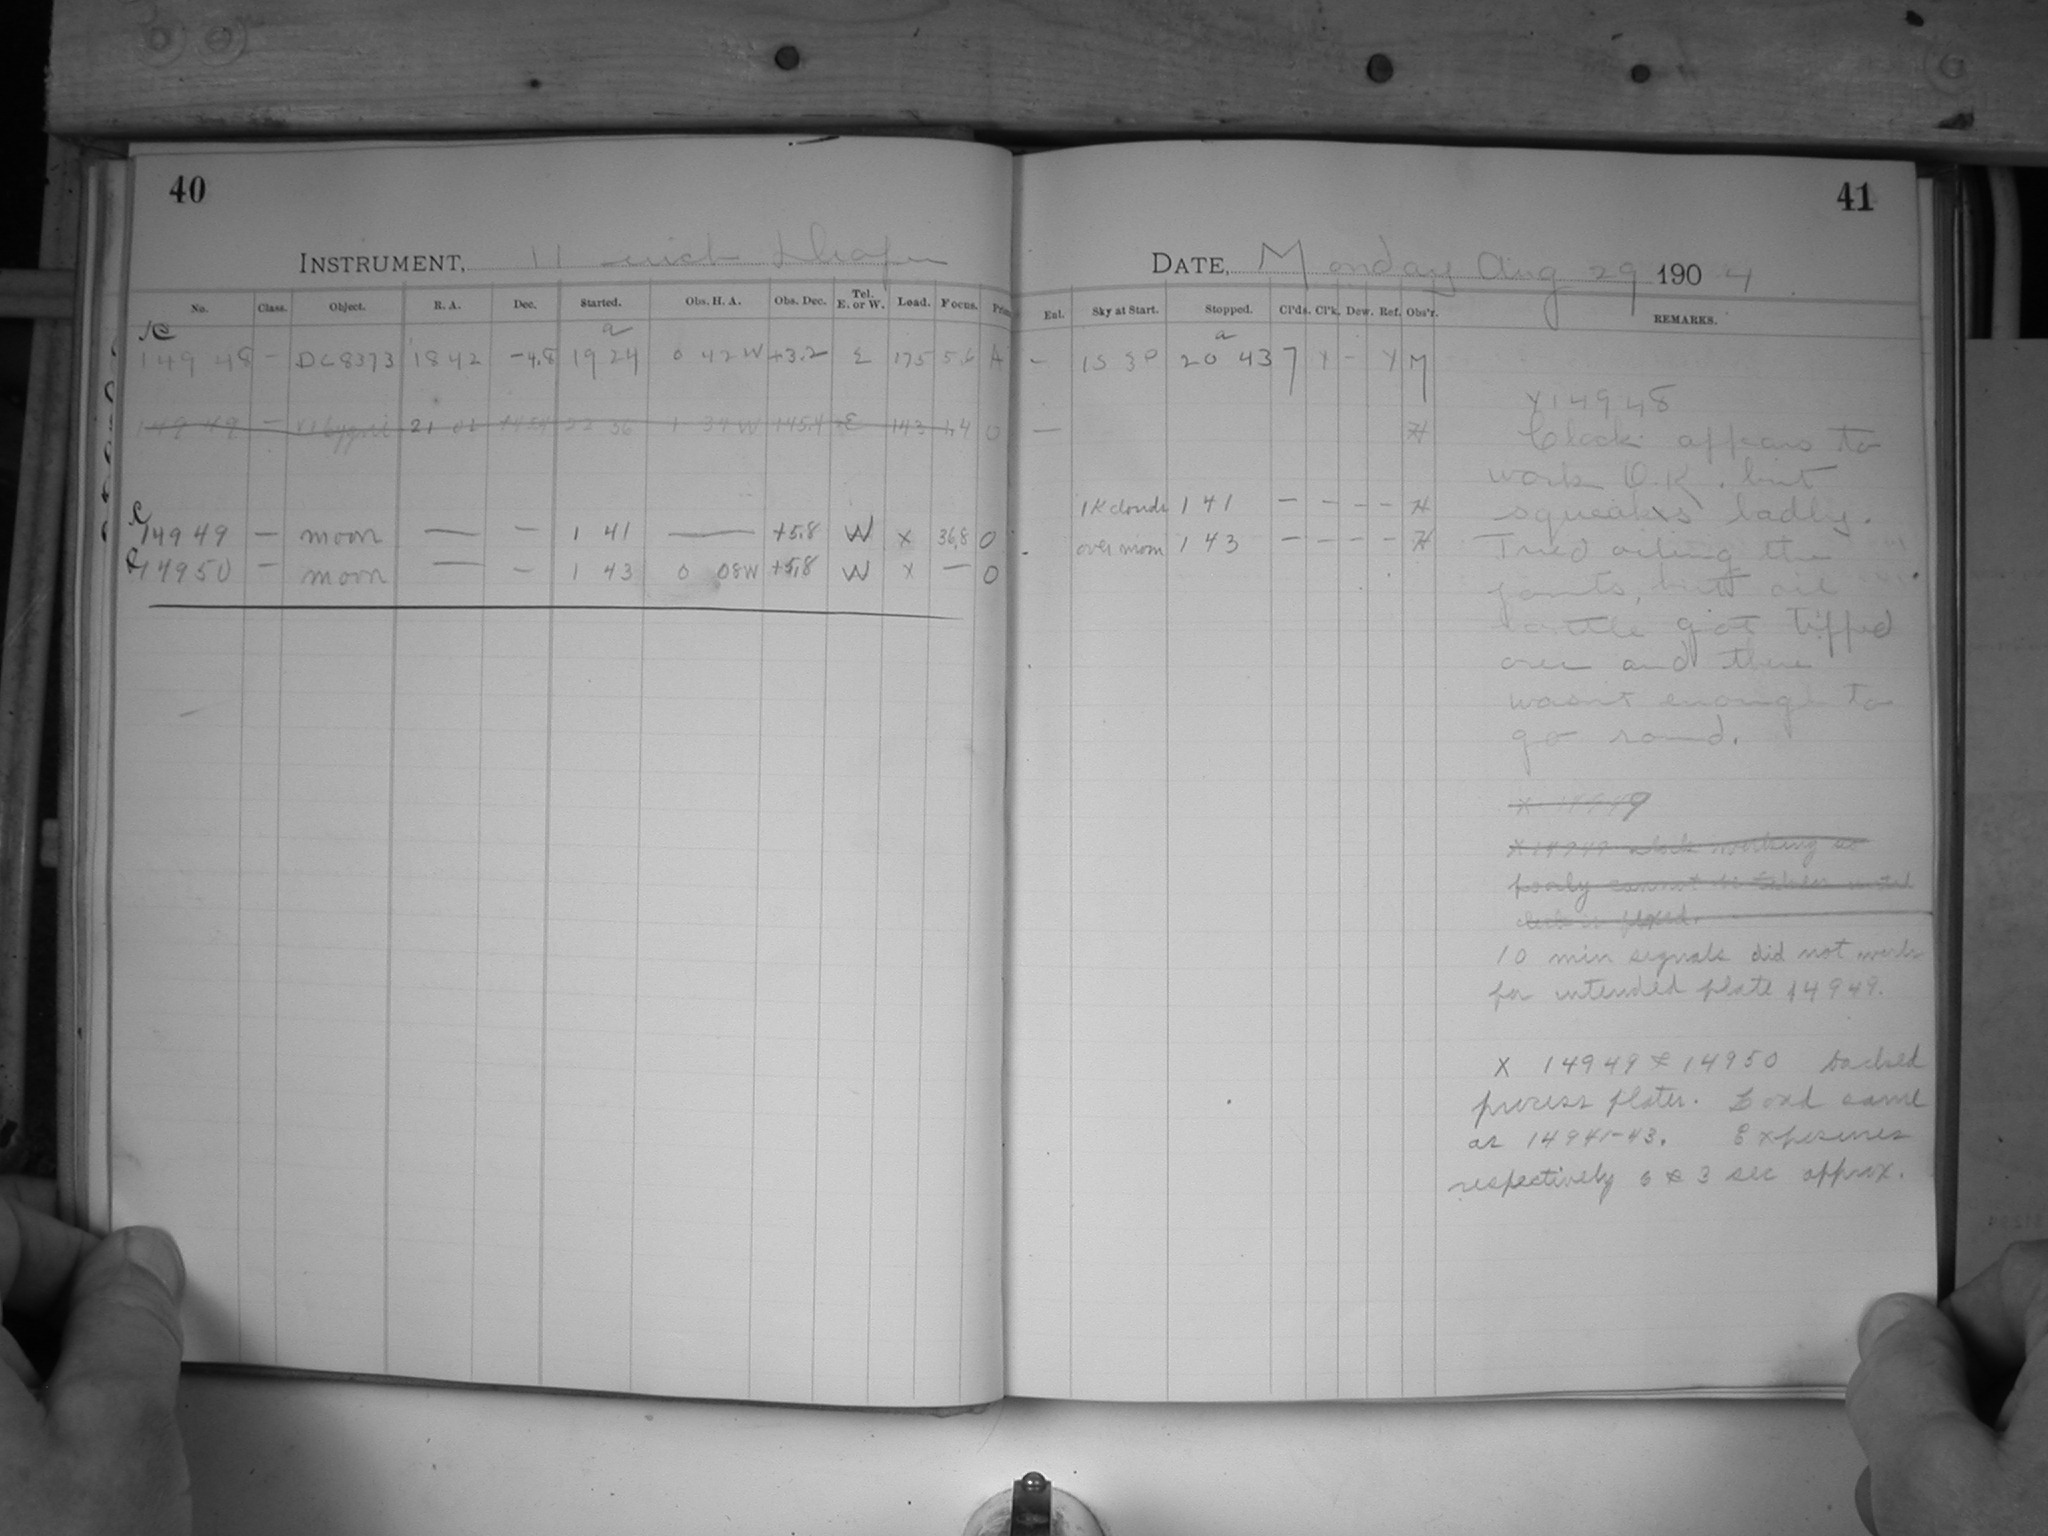 40
INSTRUMENT, 11 inch Draper
No. Class. Object. R. A. Dec. Started. Obs. H. A. Obs. Dec. Tel. E. or W. Load. Focus.
14948 - DC8373 18 42 -4.8 19 24 0 42W +3.2 E 175 5.6 A
14949 - 21 01 22 56 1 34W +45.4 E 143 O
14949 — moon — — 1 41 — +5.8 W x 36,8 O
14950 — moon — — 1 43 0 08W +5,8 W x — O
41
DATE, Monday Aug 29 1904
Ent. Sky at Start. Stopped. Cl'ds. Cl'k. Dew. Ref. Obs'r. REMARKS.
- 1S 3P 20 43 7 Y - Y M
— H
clouds 1 41 — - - - H
over moon 1 43 — - - - H
X14948
Clock appears to
work O.K. but
squeaks badly.
Tried oiling the
joints, but oil
bottle got tipped
over and there
wasn't enough to
go round.
X 14949
X 14949 clock working so
poorly cannot be taken until
clock is fixed.
10 min signals did not work
for intended plate 14949.
X 14949 & 14950 backed
process plates. Load same
as 14941-43. Exposures
respectively 6 & 3 sec approx.